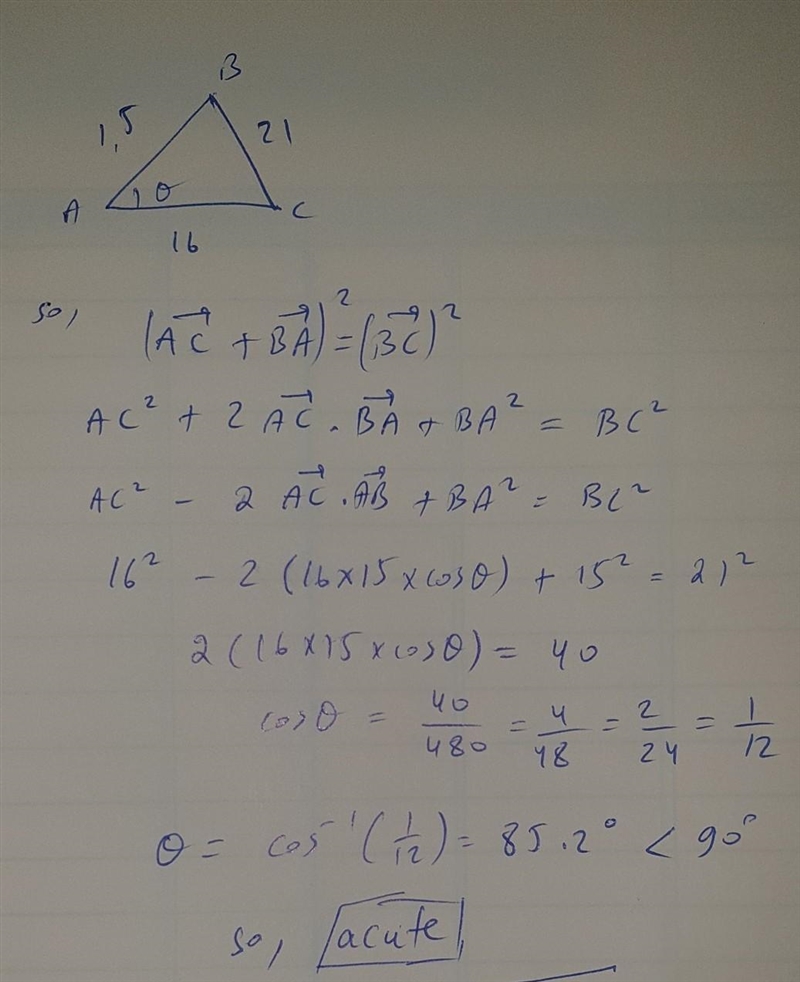 B
1,5 21
A θ C
16
so, (AC⃗ + BA⃗)² = (BC⃗)²
AC² + 2 AC⃗ . BA⃗ + BA² = BC²
AC² - 2 AC⃗ . AB⃗ + BA² = BC²
16² - 2 (16×15×cosθ) + 15² = 21²
2 (16×15×cosθ) = 40
cosθ = 40/480 = 4/48 = 2/24 = 1/12
θ = cos⁻¹(1/12) = 85.2° < 90°
so, acute